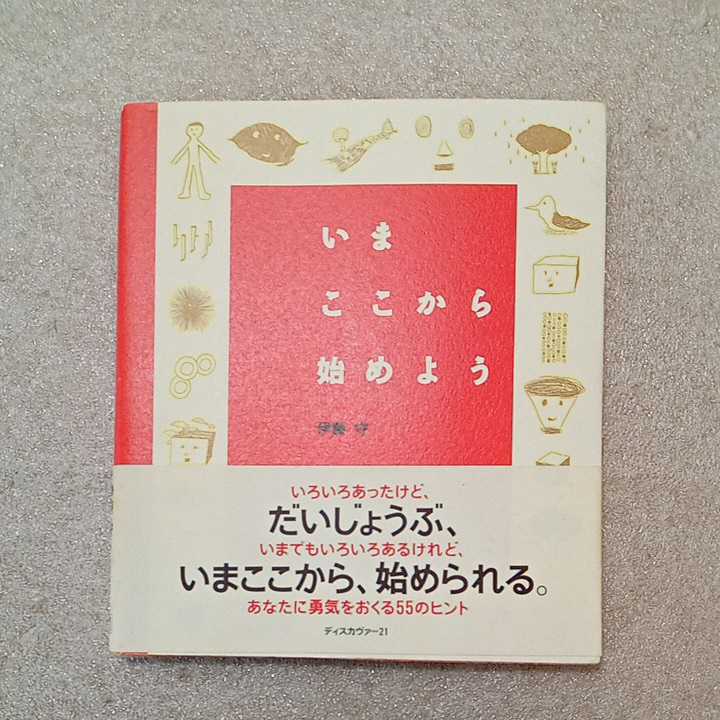 いま
ここから
始めよう
伊藤 守
いろいろあったけど、
だいじょうぶ、
いまでもいろいろあるけれど、
いまここから、始められる。
あなたに勇気をおくる55のヒント
ディスカヴァー21